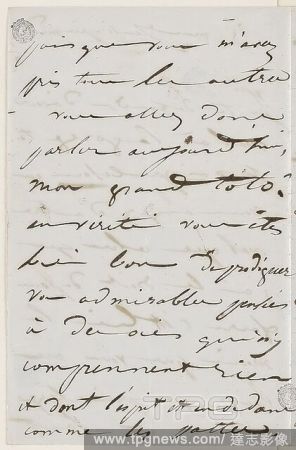 puisque vous m'avez
pris tous les autres
vous allez donc
parler aujourd'hui,
mon grand toto.
en vérité vous êtes
bien bon de prodiguer
vos admirables
à des oies qui n'y
comprennent rien
et dont l'esprit est en dedans
comme les pattes.
TPG
www.tpgnews.com / 達志影像